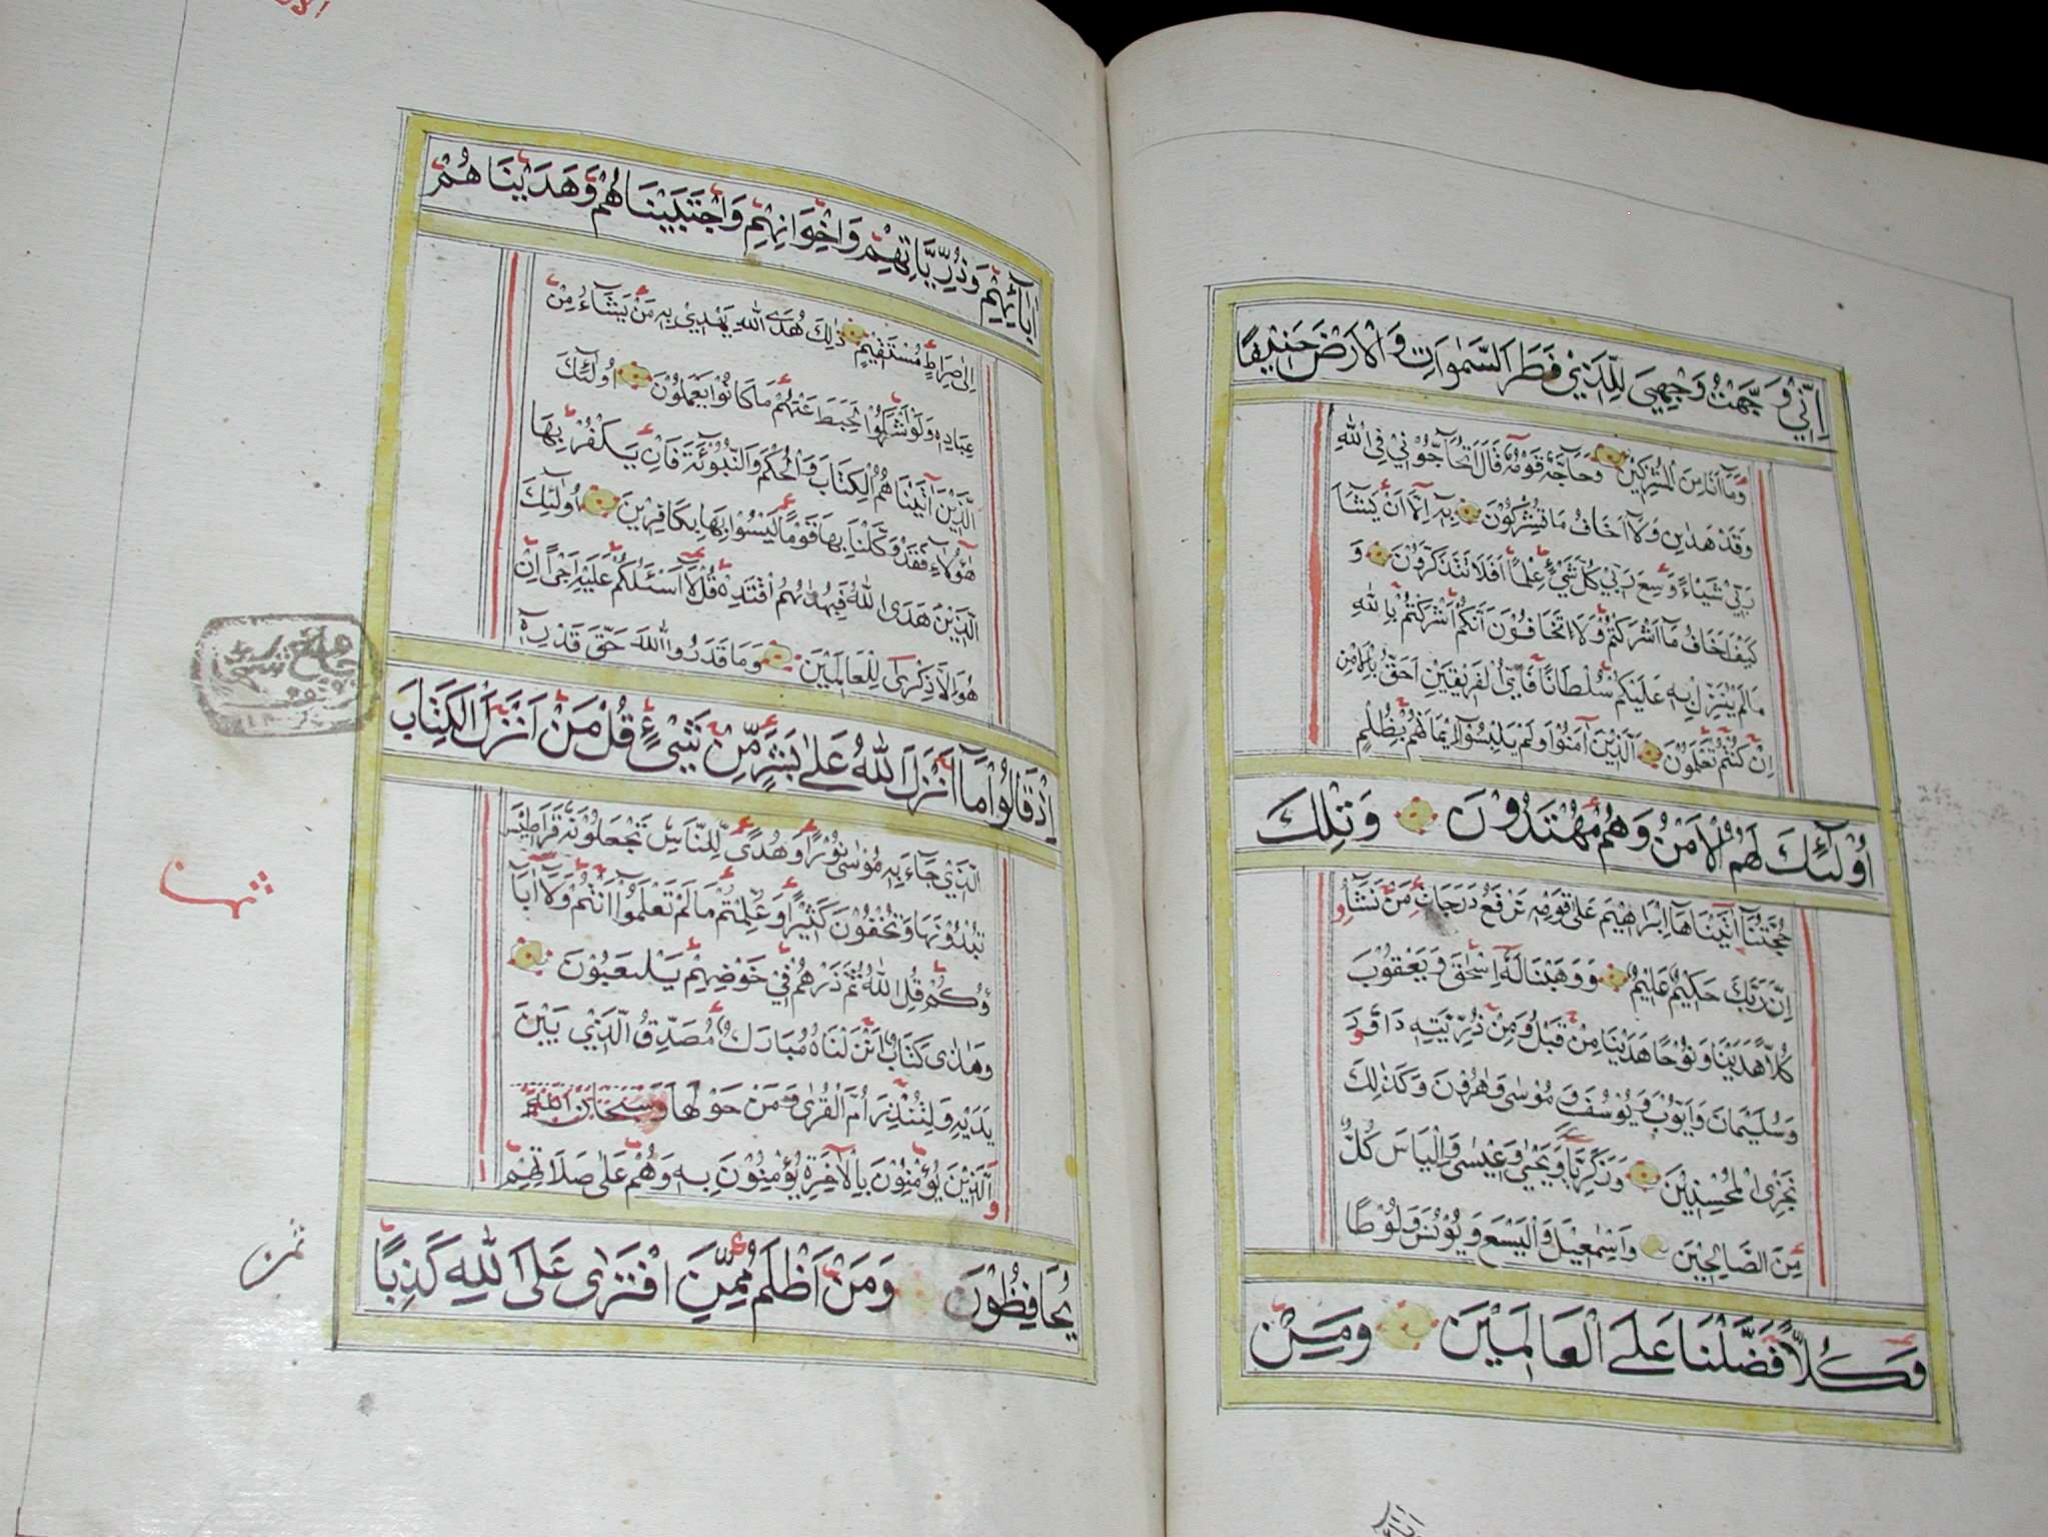 اِنّي وَجَّهْتُ وَجْهِيَ لِلَّذيْ فَطَرَ السَّمٰوَاتِ وَالْاَرْضَ حَنيْفًا
وَمَآ اَنَا مِنَ الْمُشْرِكيْنَ وَحَآجَّهٗ قَوْمُهٗ قَالَ اَتُحَآجُّوْنيْ فِي اللّٰهِ
وَقَدْ هَدٰينِ وَلَآ اَخَافُ مَا تُشْرِكُوْنَ بِهٖٓ اِلَّآ اَنْ يَشَآءَ
رَبّيْ شَيْـًٔا وَسِعَ رَبّيْ كُلَّ شَيْءٍ عِلْمًا اَفَلَا تَتَذَكَّرُوْنَ وَ
كَيْفَ اَخَافُ مَآ اَشْرَكْتُمْ وَلَا تَخَافُوْنَ اَنَّكُمْ اَشْرَكْتُمْ بِاللّٰهِ
مَا لَمْ يُنَزِّلْ بِهٖ عَلَيْكُمْ سُلْطَانًا فَاَيُّ الْفَريْقَيْنِ اَحَقُّ بِالْاَمْنِ
اِنْ كُنْتُمْ تَعْلَمُوْنَ اَلَّذيْنَ آمَنُوْا وَلَمْ يَلْبِسُوْٓا ايْمَانَهُمْ بِظُلْمٍ
اُولٰٓئِكَ لَهُمُ الْاَمْنُ وَهُمْ مُهْتَدُوْنَ وَتِلْكَ
حُجَّتُنَآ آتَيْنَاهَآ اِبْرَاهيْمَ عَلٰى قَوْمِهٖ نَرْفَعُ دَرَجَاتٍ مَنْ نَشَآءُ
اِنَّ رَبَّكَ حَكيْمٌ عَليْمٌ وَوَهَبْنَا لَهٗٓ اِسْحٰقَ وَيَعْقُوْبَ
كُلًّا هَدَيْنَا وَنُوْحًا هَدَيْنَا مِنْ قَبْلُ وَمِنْ ذُرِّيَّتِهٖ دَاوُدَ
وَسُلَيْمَانَ وَاَيُّوْبَ وَيُوْسُفَ وَمُوْسٰى وَهٰرُوْنَ وَكَذٰلِكَ
نَجْزِي الْمُحْسِنيْنَ وَزَكَرِيَّا وَيَحْيٰى وَعيْسٰى وَاِلْيَاسَ كُلٌّ
مِنَ الصَّالِحيْنَ وَاِسْمٰعيْلَ وَالْيَسَعَ وَيُوْنُسَ وَلُوْطًا
وَكُلًّا فَضَّلْنَا عَلَى الْعَالَميْنَ وَمِنْ
اٰبَآئِهِمْ وَذُرِّيَّاتِهِمْ وَاِخْوَانِهِمْ وَاجْتَبَيْنَاهُمْ وَهَدَيْنَاهُمْ
اِلٰى صِرَاطٍ مُسْتَقيْمٍ ذٰلِكَ هُدَى اللّٰهِ يَهْديْ بِهٖ مَنْ يَشَآءُ مِنْ
عِبَادِهٖ وَلَوْ اَشْرَكُوْا لَحَبِطَ عَنْهُمْ مَا كَانُوْا يَعْمَلُوْنَ اُولٰٓئِكَ
الَّذيْنَ آتَيْنَاهُمُ الْكِتَابَ وَالْحُكْمَ وَالنُّبُوَّةَ فَاِنْ يَكْفُرْ بِهَا
هٰٓؤُلَآءِ فَقَدْ وَكَّلْنَا بِهَا قَوْمًا لَيْسُوْا بِهَا بِكَافِريْنَ اُولٰٓئِكَ
الَّذيْنَ هَدَى اللّٰهُ فَبِهُدٰيهُمُ اقْتَدِهْ قُلْ لَآ اَسْئَلُكُمْ عَلَيْهِ اَجْرًا اِنْ
هُوَ اِلَّا ذِكْرٰى لِلْعَالَميْنَ وَمَا قَدَرُوا اللّٰهَ حَقَّ قَدْرِهٖٓ
اِذْ قَالُوْا مَآ اَنْزَلَ اللّٰهُ عَلٰى بَشَرٍ مِنْ شَيْءٍ قُلْ مَنْ اَنْزَلَ الْكِتَابَ
الَّذيْ جَآءَ بِهٖ مُوْسٰى نُوْرًا وَهُدًى لِلنَّاسِ تَجْعَلُوْنَهٗ قَرَاطيْسَ
تُبْدُوْنَهَا وَتُخْفُوْنَ كَثيْرًا وَعُلِّمْتُمْ مَا لَمْ تَعْلَمُوْٓا اَنْتُمْ وَلَآ اٰبَآ
ؤُكُمْ قُلِ اللّٰهُ ثُمَّ ذَرْهُمْ فيْ خَوْضِهِمْ يَلْعَبُوْنَ
وَهٰذَا كِتَابٌ اَنْزَلْنَاهُ مُبَارَكٌ مُصَدِّقُ الَّذيْ بَيْنَ
يَدَيْهِ وَلِتُنْذِرَ اُمَّ الْقُرٰى وَمَنْ حَوْلَهَا
وَالَّذيْنَ يُؤْمِنُوْنَ بِالْآخِرَةِ يُؤْمِنُوْنَ بِهٖ وَهُمْ عَلٰى صَلَاتِهِمْ
يُحَافِظُوْنَ وَمَنْ اَظْلَمُ مِمَّنِ افْتَرٰى عَلَى اللّٰهِ كَذِبًا
ثمن
ثمن